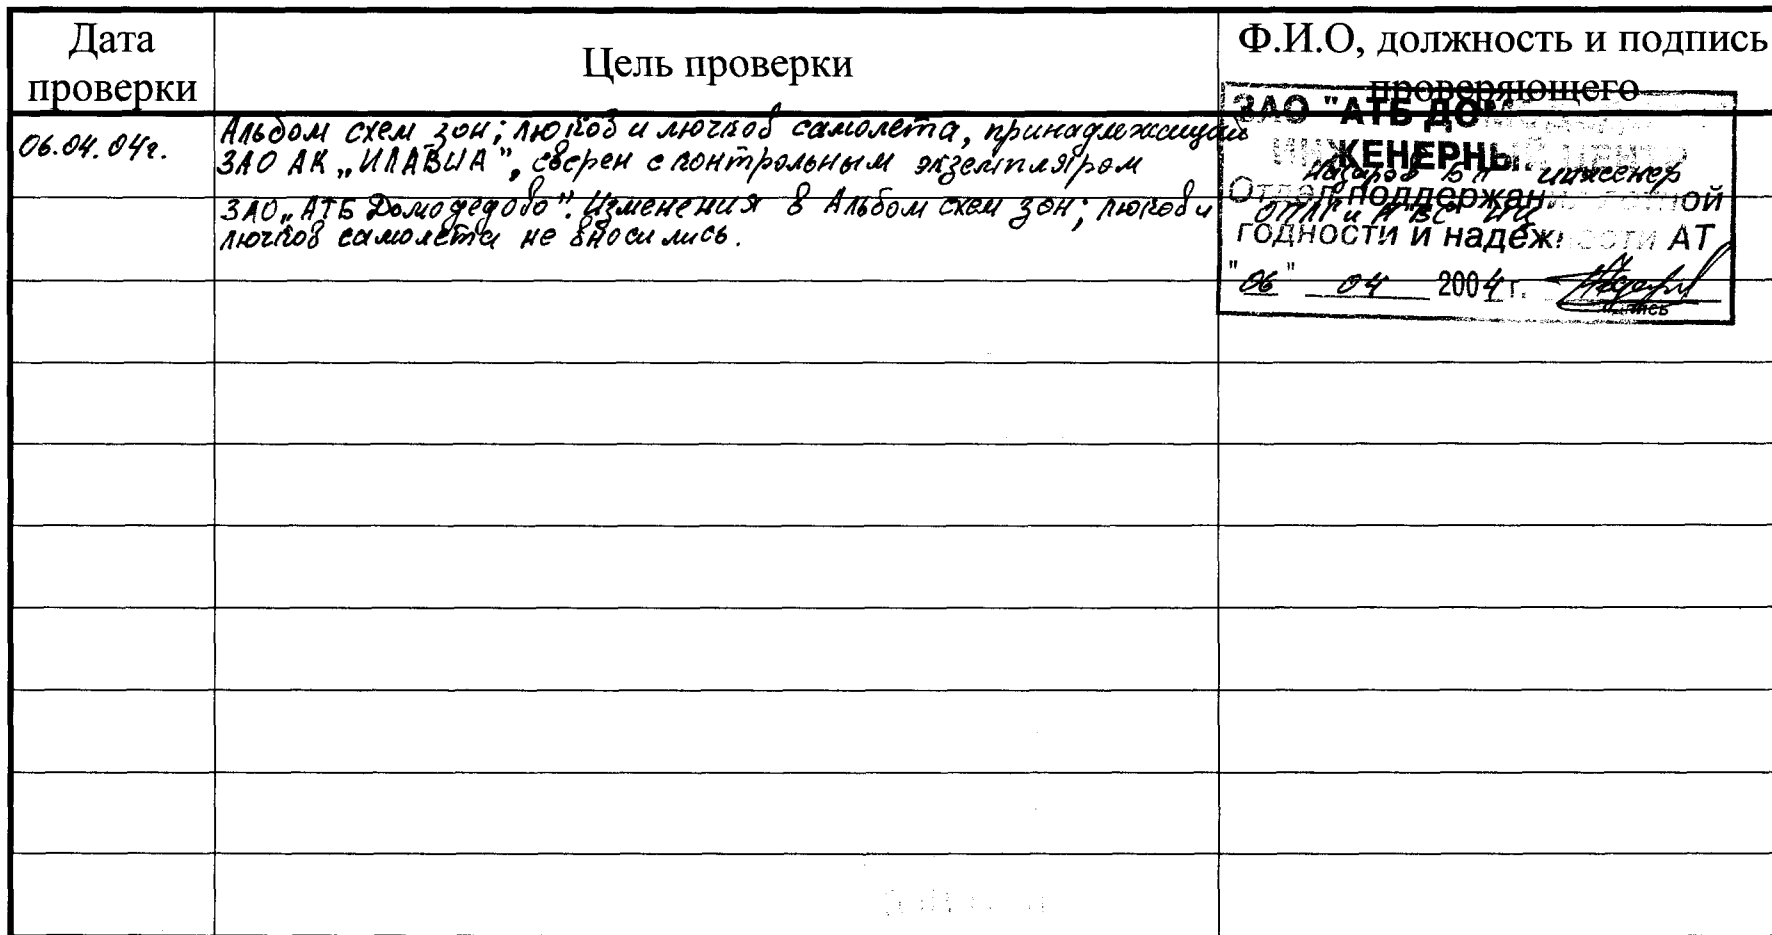 Дата
проверки
Цель проверки
Ф.И.О, должность и подпись
проверяющего
06.04.04г.
Альбом схем зон; люков и лючков самолета, принадлежащий
ЗАО АК „ИЛАВИА", сверен с контрольным экземпляром
ЗАО „АТБ Домодедово". Изменения в Альбом схем зон; люков и
лючков самолета не вносились.
ЗАО "АТБ ДОМ
ИНЖЕНЕРНЫЙ ЦЕНТР
Назаров инженер
Отдел поддержания летной
годности и надежности АТ
"06" 04 2004 г.
подпись